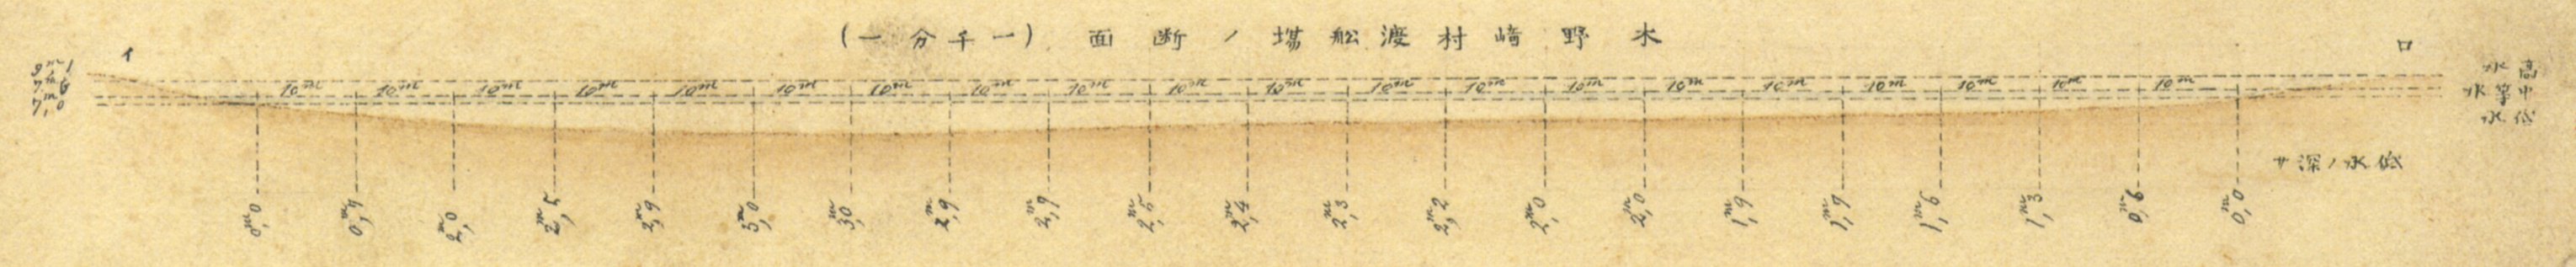 木野﨑村渡舩塲ノ断面 (一千分一)
イ
ロ
9,m1
7,m6
7,m0
10m 10m 10m 10m 10m 10m 10m 10m 10m 10m 10m 10m 10m 10m 10m 10m 10m 10m 10m 10m
高水
中等水
低水
低水ノ深サ
0,m0 0,m4 2,m0 2,m5 2,m9 3,m0 3,m0 2,m9 2,m7 2,m5 2,m4 2,m3 2,m2 2,m0 2,m0 1,m9 1,m7 1,m6 1,m3 0,m6 0,m0